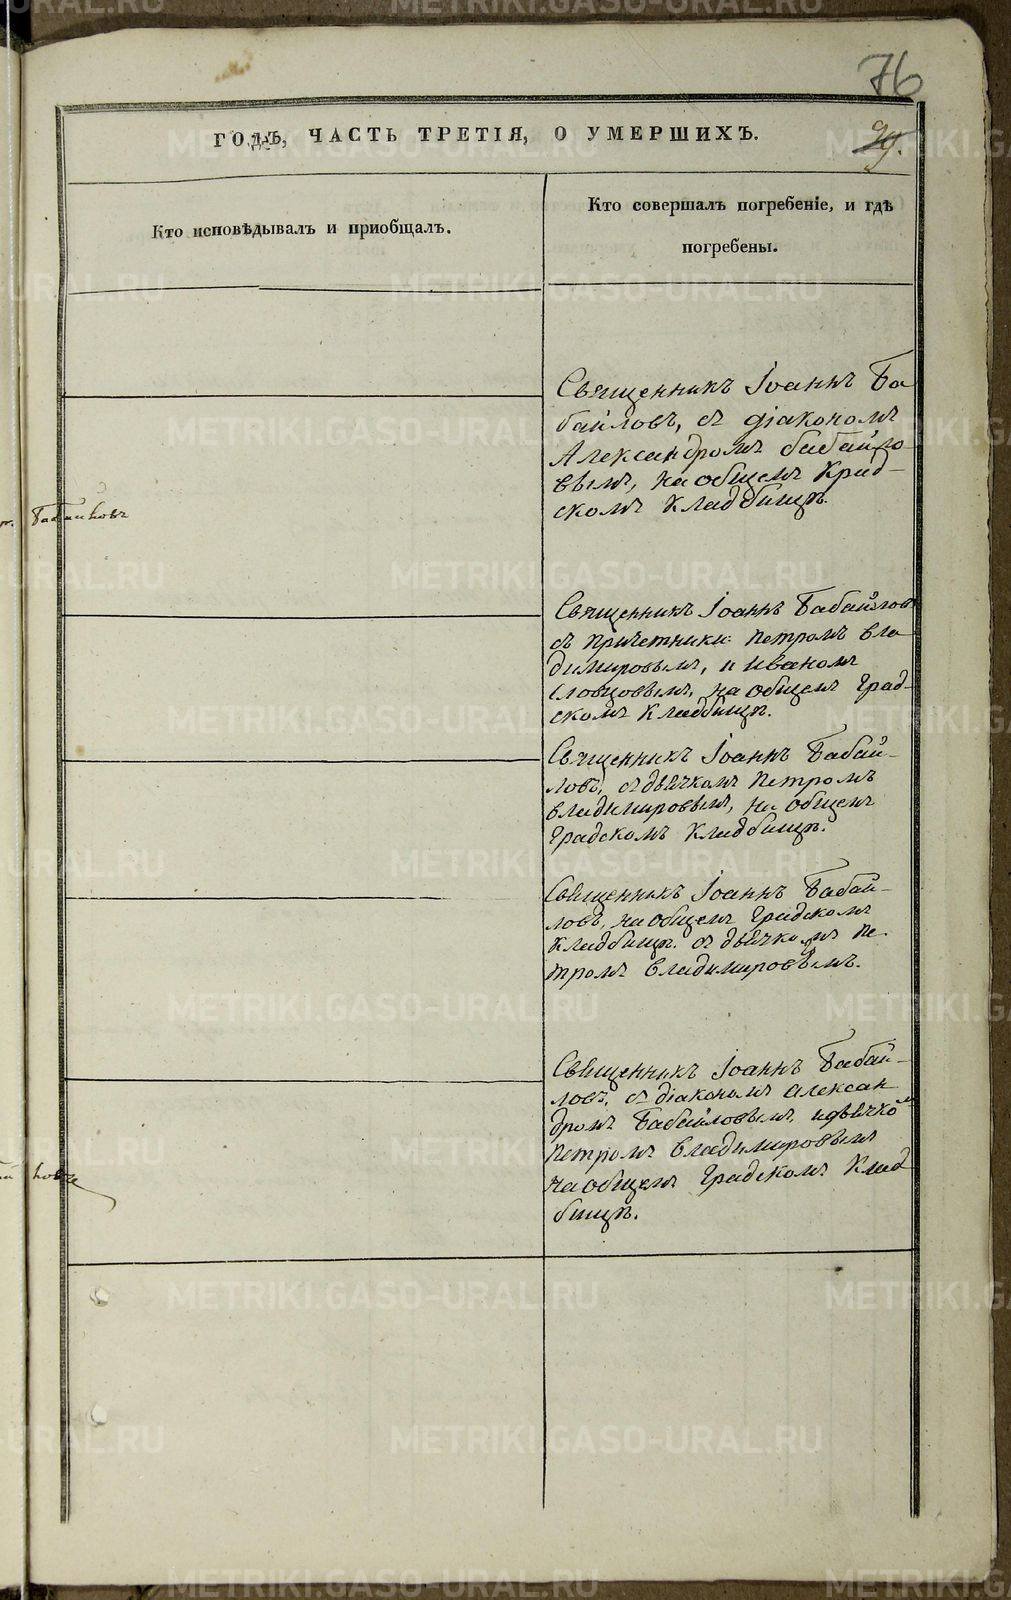 76
29.
ГОДЪ, ЧАСТЬ ТРЕТІЯ, О УМЕРШИХЪ.
Кто исповѣдывалъ и приобщалъ.
Кто совершалъ погребеніе, и гдѣ
погребены.
Священникъ Іоаннъ Ба
байловъ, съ діакономъ
Александромъ бабайло
вымъ, на общемъ Град-
скомъ Кладбищѣ.
Священникъ Іоаннъ Бабайловъ
съ причетники: Петромъ Вла
димировымъ, и Иваномъ
Словцовымъ, на общемъ Град-
скомъ Кладбищѣ.
Священникъ Іоаннъ Бабай-
ловъ, съ дьячкомъ Петромъ
Владимировымъ, на общемъ
Градскомъ Кладбищѣ.
Священникъ Іоаннъ Бабай-
ловъ, на общемъ Градскомъ
Кладбищѣ. съ дьячкомъ Пе-
тромъ Владимировымъ.
Священникъ Іоаннъ Бабай-
ловъ, съ діакономъ Алексан
дромъ Бабайловымъ, и дьячком
Петромъ Владимировымъ
на общемъ Градскомъ Клад
бищѣ.
METRIKI.GASO-URAL.RU